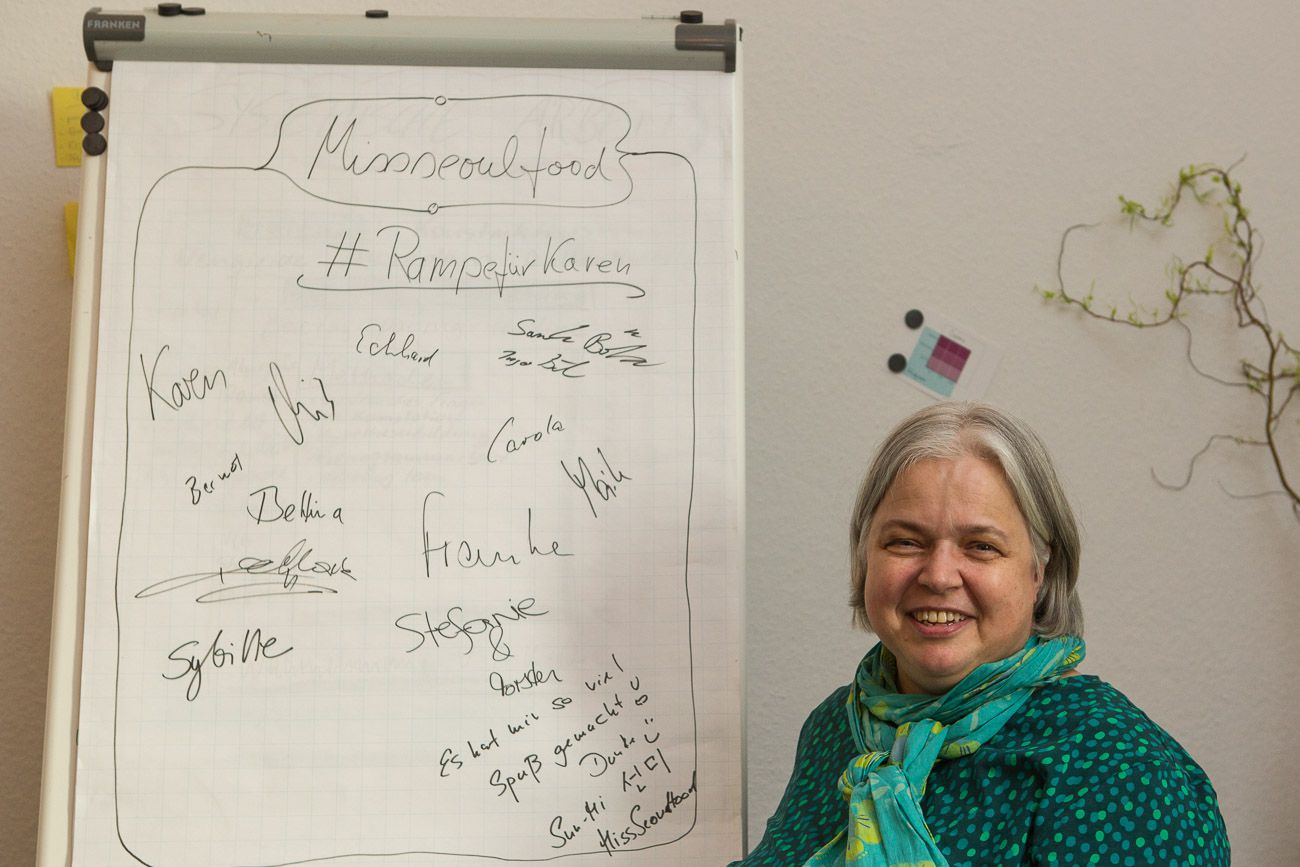 FRANKEN
Missseoulfood
#RampefürKaren
Eckhard
Karen
Carola
Maik
Bernd
Bettina
Frauke
Sybille
Stefanie
&
Torsten
Es hat mir so viel
Spaß gemacht
Danke
Sun-Mi 선미
MissSeoulfood